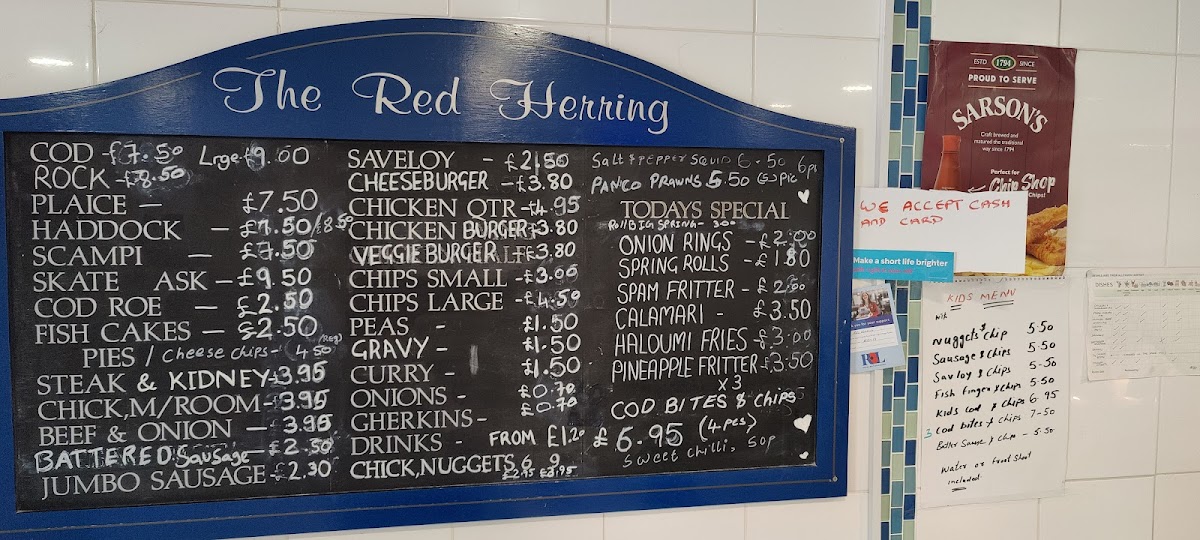 The Red Herring
COD - £7.50 Lrge £9.00
ROCK - £8.50
PLAICE - £7.50
HADDOCK - £7.50/£8.50
SCAMPI - £7.50
SKATE ASK - £9.50
COD ROE - £2.50
FISH CAKES - £2.50
PIES / Cheese chips - 4.50 (Reg)
STEAK & KIDNEY - £3.95
CHICK,M/ROOM - £3.95
BEEF & ONION - £3.95
BATTERED Sausage - £2.50
JUMBO SAUSAGE - £2.30
SAVELOY - £2.50
CHEESEBURGER - £3.80
CHICKEN QTR - £4.95
CHICKEN BURGER £3.80
VEGGIE BURGER £3.80
CHIPS SMALL - £3.00
CHIPS LARGE - £4.50
PEAS - £1.50
GRAVY - £1.50
CURRY - £1.50
ONIONS - £0.70
GHERKINS - £0.70
DRINKS - FROM £1.20
CHICK,NUGGETS 6 9
£2.75 £3.95
Salt & Pepper Squid 6.50 6ps
PANCO PRAWNS 5.50
TODAYS SPECIAL
Roll BIG SPRING - 300
ONION RINGS - £2.00
SPRING ROLLS - £1.80
SPAM FRITTER - £2.00
CALAMARI - £3.50
HALOUMI FRIES - £3.00
PINEAPPLE FRITTER - £3.50
X3
COD BITES & Chips
£6.95 (4 pcs)
Sweet chilli, 50p
ESTD 1794 SINCE
PROUD TO SERVE
SARSON'S
Craft brewed and
matured the traditional
way since 1794
Perfect for
Chip Shop
Chips!
WE ACCEPT CASH
AND CARD
Make a short life brighter
KIDS MENU
Nuggets & chip 5.50
Sausage & chips 5.50
Savloy & chips 5.50
Fish fingers & chips 5.50
Kids cod & chips 6.95
3 Cod bites & chips 7-50
Batter Sausage & chip - 5.50
Water or Fruit Shoot
included.
DISHES